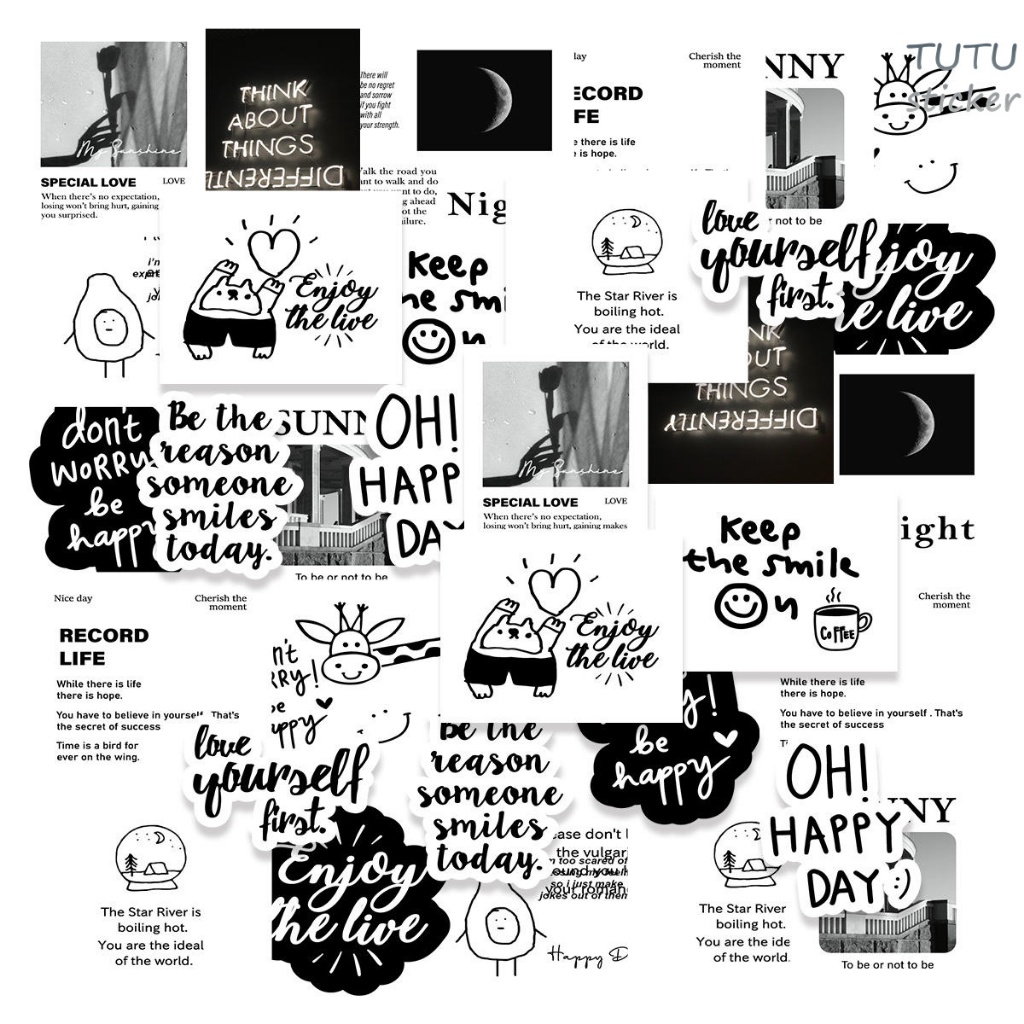 TUTU
sticker
My Sunshine
SPECIAL LOVE LOVE
When there's no expectation,
losing won't bring hurt, gaining
you surprised.
THINK
ABOUT
THINGS
DIFFERENTLY
There will
be no regret
and sorrow
if you fight
with all
your strength.
Walk the road you
want to walk and do
want to do,
ahead
not the
failure.
Nig
day
Cherish the
moment
ECORD
FE
there is life
is hope.
NNY
or not to be
Enjoy
the live
Keep
he smi
on
The Star River is
boiling hot.
You are the ideal
of the world.
love
yourself
first.
joy
he live
NK
OUT
THINGS
DIFFERENTLY
don't
WORRY
be
happy
Be the
reason
someone
smiles
today.
SUNN
To be or not to be
OH!
HAPP
DA
My Sunshine
SPECIAL LOVE LOVE
When there's no expectation,
losing won't bring hurt, gaining makes
Keep
the smile
on
COFFEE
ight
Nice day
Cherish the
moment
RECORD
LIFE
While there is life
there is hope.
You have to believe in yourself. That's
the secret of success
Time is a bird for
ever on the wing.
n't
RRY!
be
appy
Enjoy
the live
Cherish the
moment
While there is life
there is hope.
You have to believe in yourself . That's
the secret of success
love
yourself
first.
Be the
reason
someone
smiles
today.
y!
be
happy
OH!
HAPPY
DAY
NNY
To be or not to be
The Star River is
boiling hot.
You are the ideal
of the world.
Enjoy
the live
ease don't
the vulgar
too scared of
so i just make
jokes out of them
Happy D
The Star River
boiling hot.
You are the ide
of the world.